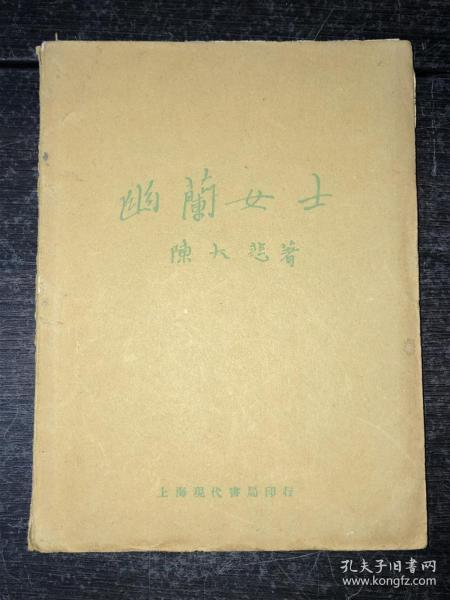 幽蘭女士
陳大悲著
上海現代書局印行
孔夫子旧书网
www.kongfz.com